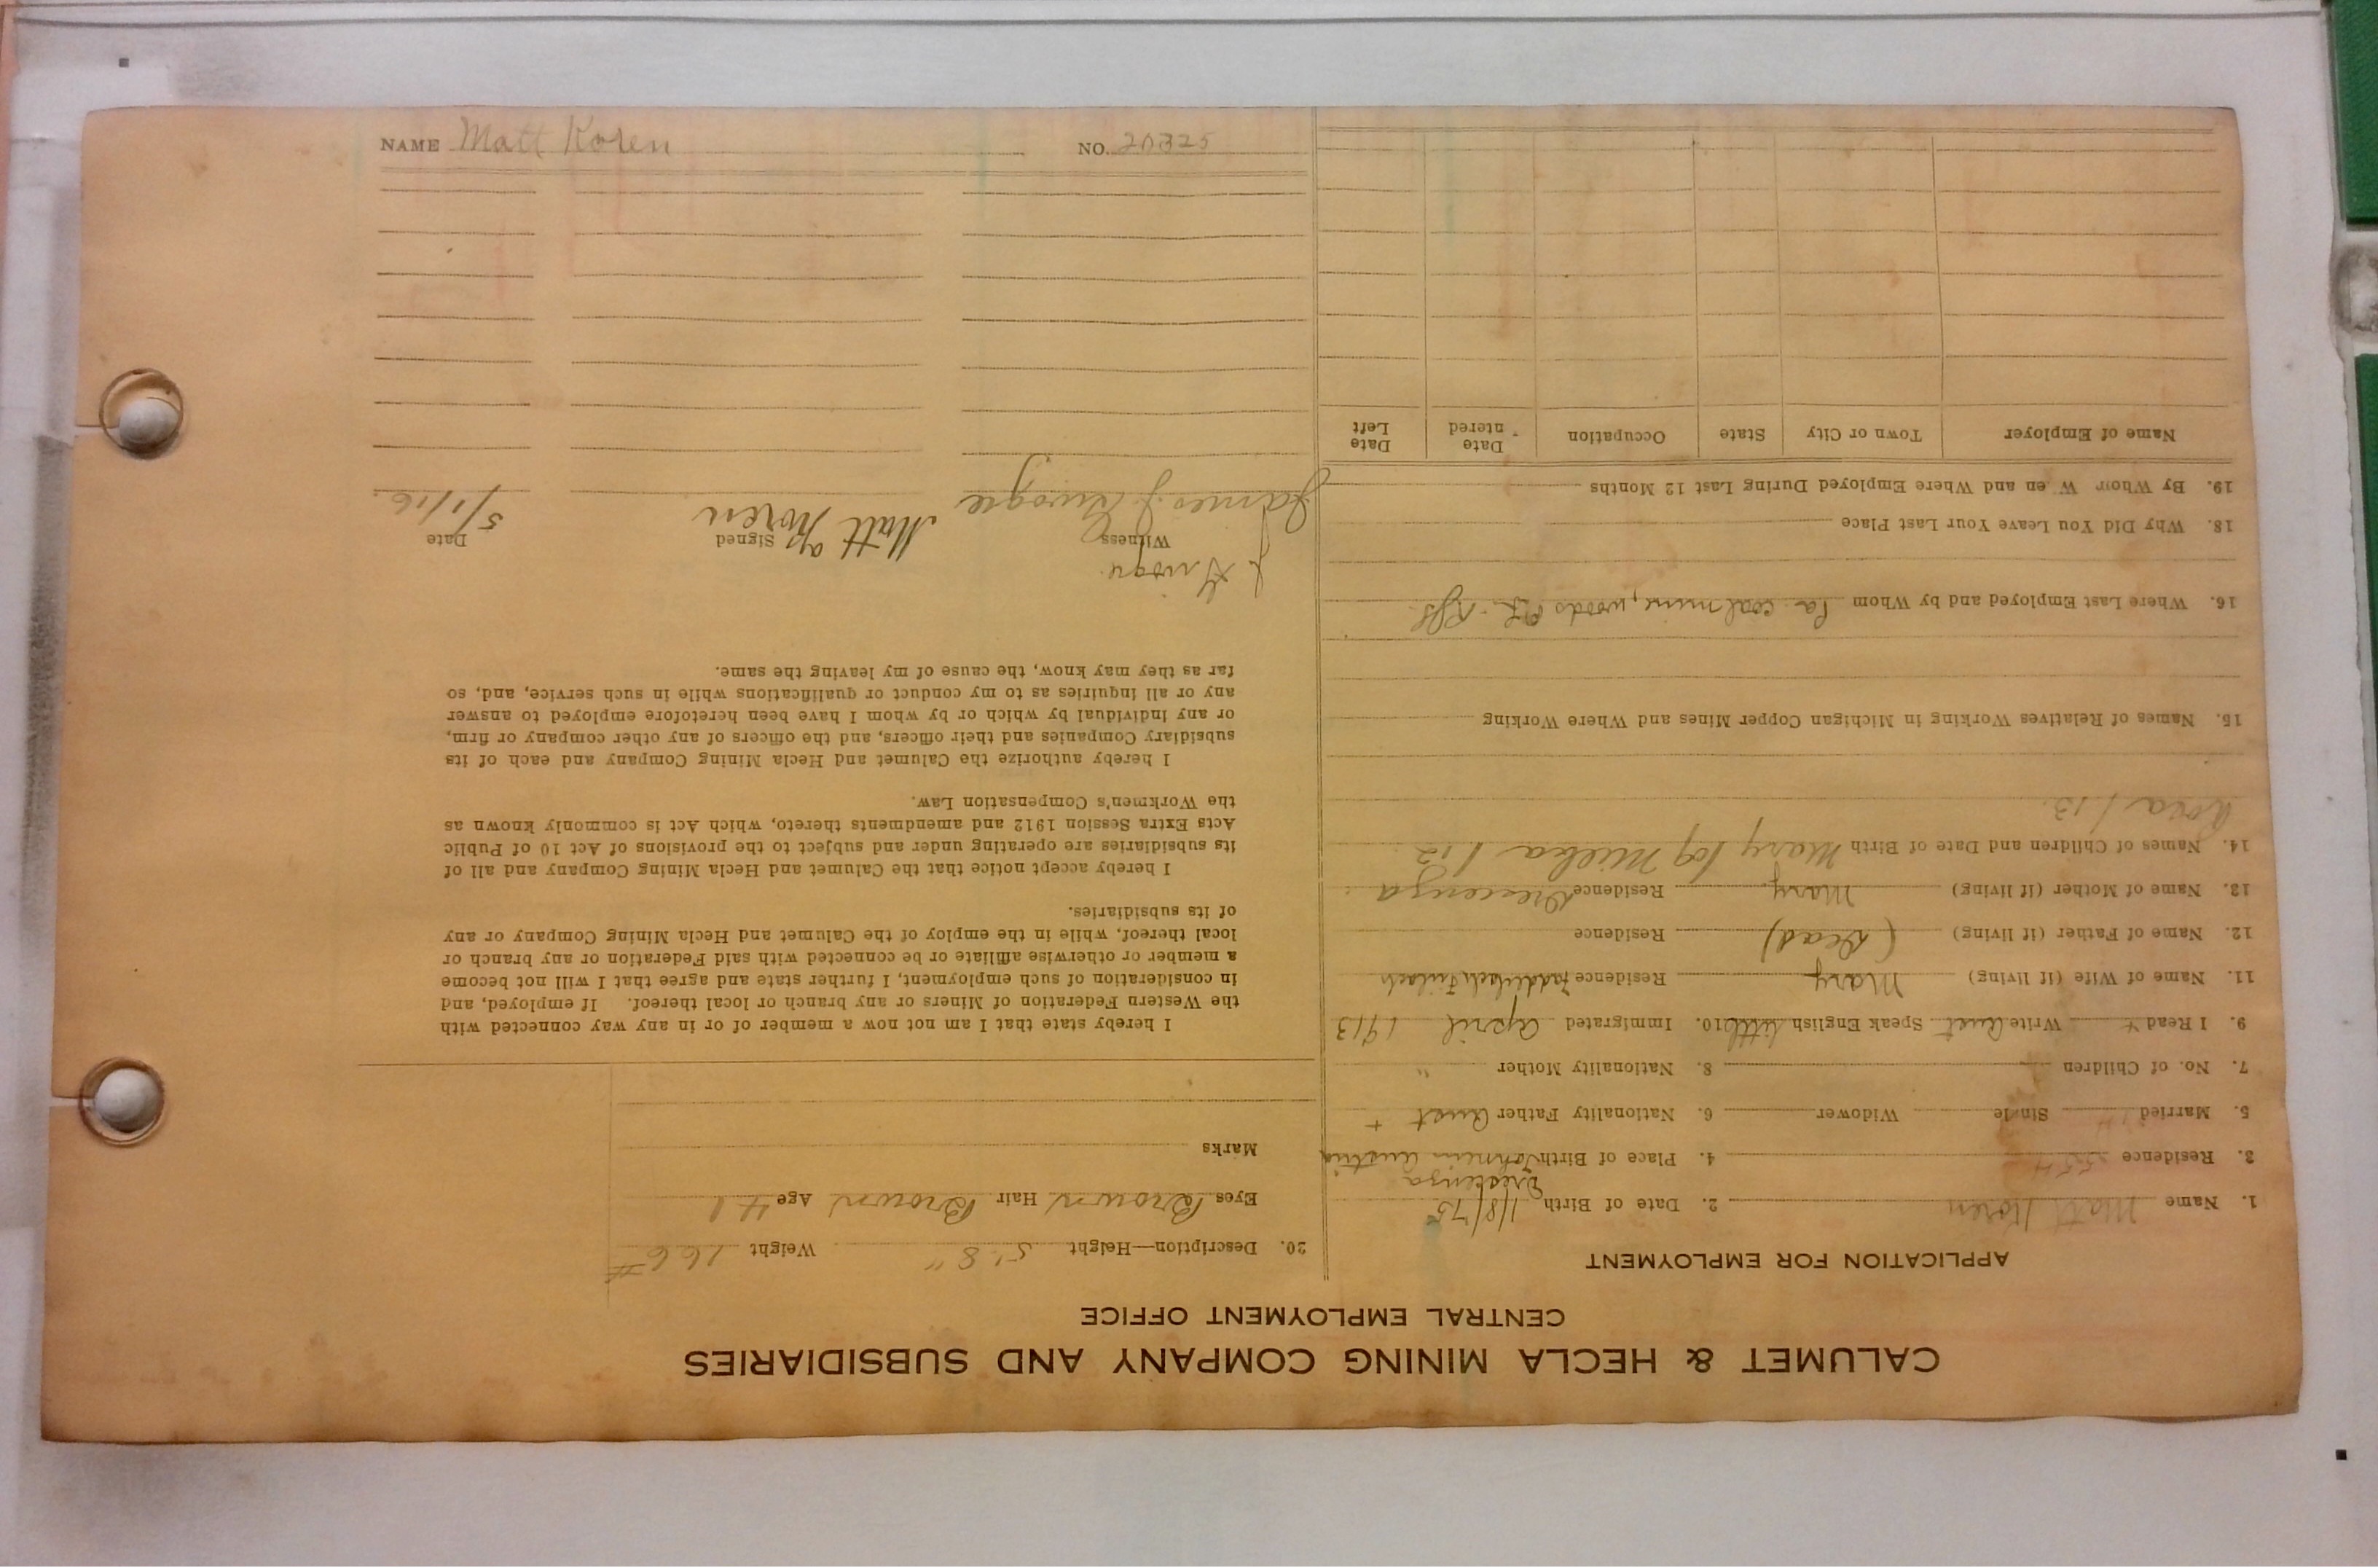 CALUMET & HECLA MINING COMPANY AND SUBSIDIARIES
CENTRAL EMPLOYMENT OFFICE
APPLICATION FOR EMPLOYMENT
1. Name Matt Koren 2. Date of Birth 1/8/75
3. Residence 4. Place of Birth Austria
5. Married Single Widower 6. Nationality Father Aust
7. No. of Children 8. Nationality Mother "
9. I Read + Write Aust Speak English little 10. Immigrated April 1913
11. Name of Wife (if living) Mary Residence
12. Name of Father (if living) (Dead) Residence
13. Name of Mother (if living) Mary Residence
14. Names of Children and Date of Birth Mary /09 /12
/13.
15. Names of Relatives Working in Michigan Copper Mines and Where Working
16. Where Last Employed and by Whom Pa coal mine, woods
18. Why Did You Leave Your Last Place
19. By Whom When and Where Employed During Last 12 Months
Name of Employer Town or City State Occupation Date Entered Date Left
20. Description—Height 5' 8" Weight 166 #
Eyes Brown Hair Brown Age 41
Marks
I hereby state that I am not now a member of or in any way connected with
the Western Federation of Miners or any branch or local thereof. If employed, and
in consideration of such employment, I further state and agree that I will not become
a member or otherwise affiliate or be connected with said Federation or any branch or
local thereof, while in the employ of the Calumet and Hecla Mining Company or any
of its subsidiaries.
I hereby accept notice that the Calumet and Hecla Mining Company and all of
its subsidiaries are operating under and subject to the provisions of Act 10 of Public
Acts Extra Session 1912 and amendments thereto, which Act is commonly known as
the Workmen's Compensation Law.
I hereby authorize the Calumet and Hecla Mining Company and each of its
subsidiary Companies and their officers, and the officers of any other company or firm,
or any individual by which or by whom I have been heretofore employed to answer
any or all inquiries as to my conduct or qualifications while in such service, and, so
far as they may know, the cause of my leaving the same.
Witness Signed Date
James J. Matt Koren 5/1/16.
NAME Matt Koren NO. 20325